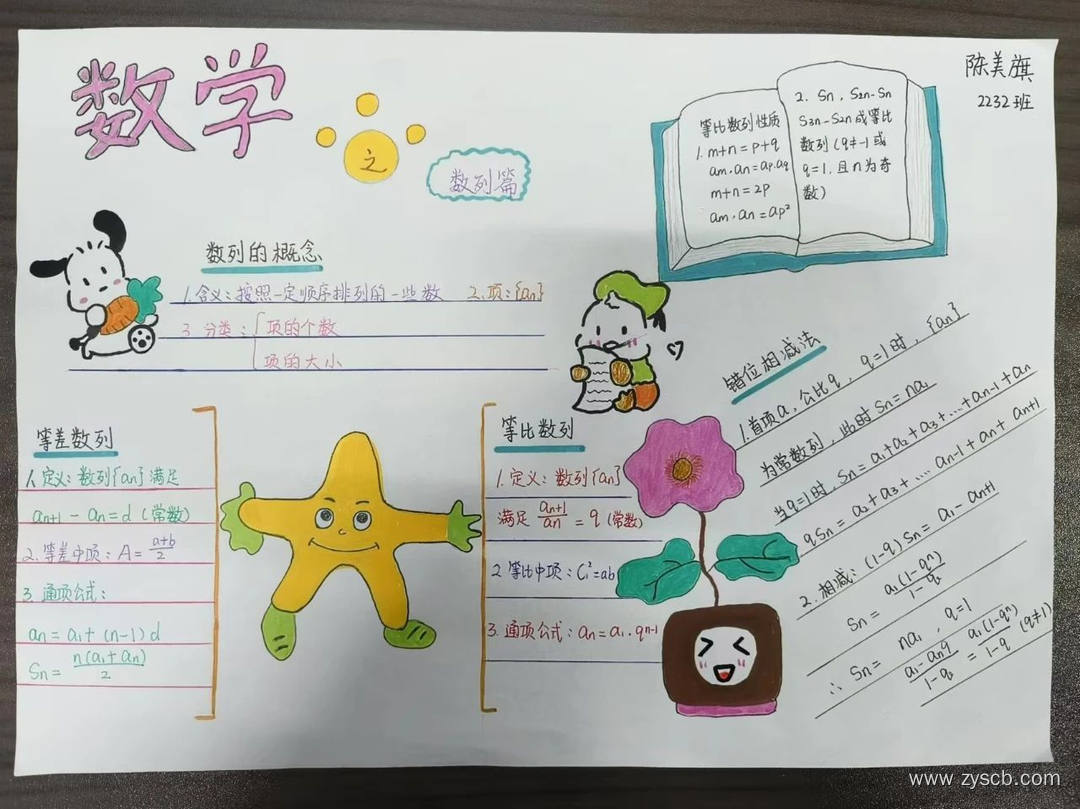 数学
之
数列篇
陈美旗
2232班
等比数列性质
1. m+n=p+q
am·an=ap·aq
m+n=2p
am·an=ap²
2. Sn, S2n-Sn
S3n-S2n成等比
数列(q≠-1或
q=1,且n为奇
数)
数列的概念
1.含义:按照一定顺序排列的一些数 2.项:{an}
3 分类:{项的个数
项的大小
等差数列
1.定义:数列{an}满足
an+1-an=d(常数)
2.等差中项:A=a+b/2
3.通项公式:
an=a1+(n-1)d
Sn=n(a1+an)/2
等比数列
1.定义:数列{an}
满足an+1/an=q(常数)
2 等比中项:G²=ab
3.通项公式:an=a1·qn-1
错位相减法
1.首项a,公比q,q=1时,{an}
为常数列,此时Sn=na1
当q=1时,Sn=a1+a2+a3+...+an-1+an
qSn=a2+a3+...an-1+an+an+1
2.相减:(1-q)Sn=a1-an+1
Sn=a1(1-qn)/1-q
∴ Sn= na1,q=1
a1-anq/1-q=a1(1-qn)/1-q (q≠1)
www.zyscb.com